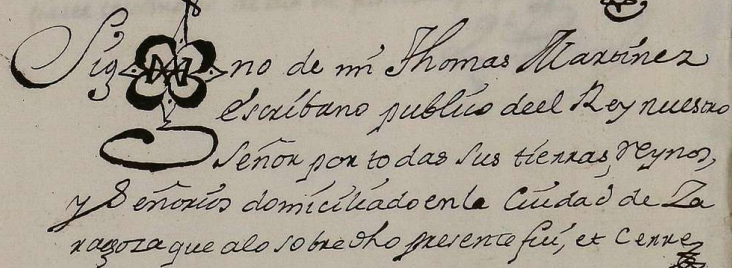 Sig no de mi Thomas Martinez
escribano publico deel Rey nuestro
señor por todas sus tierras, Reynos,
y Señorios domiciliado en la Ciudad de Za
ragoza que a lo sobredho presente fui, et Cerre